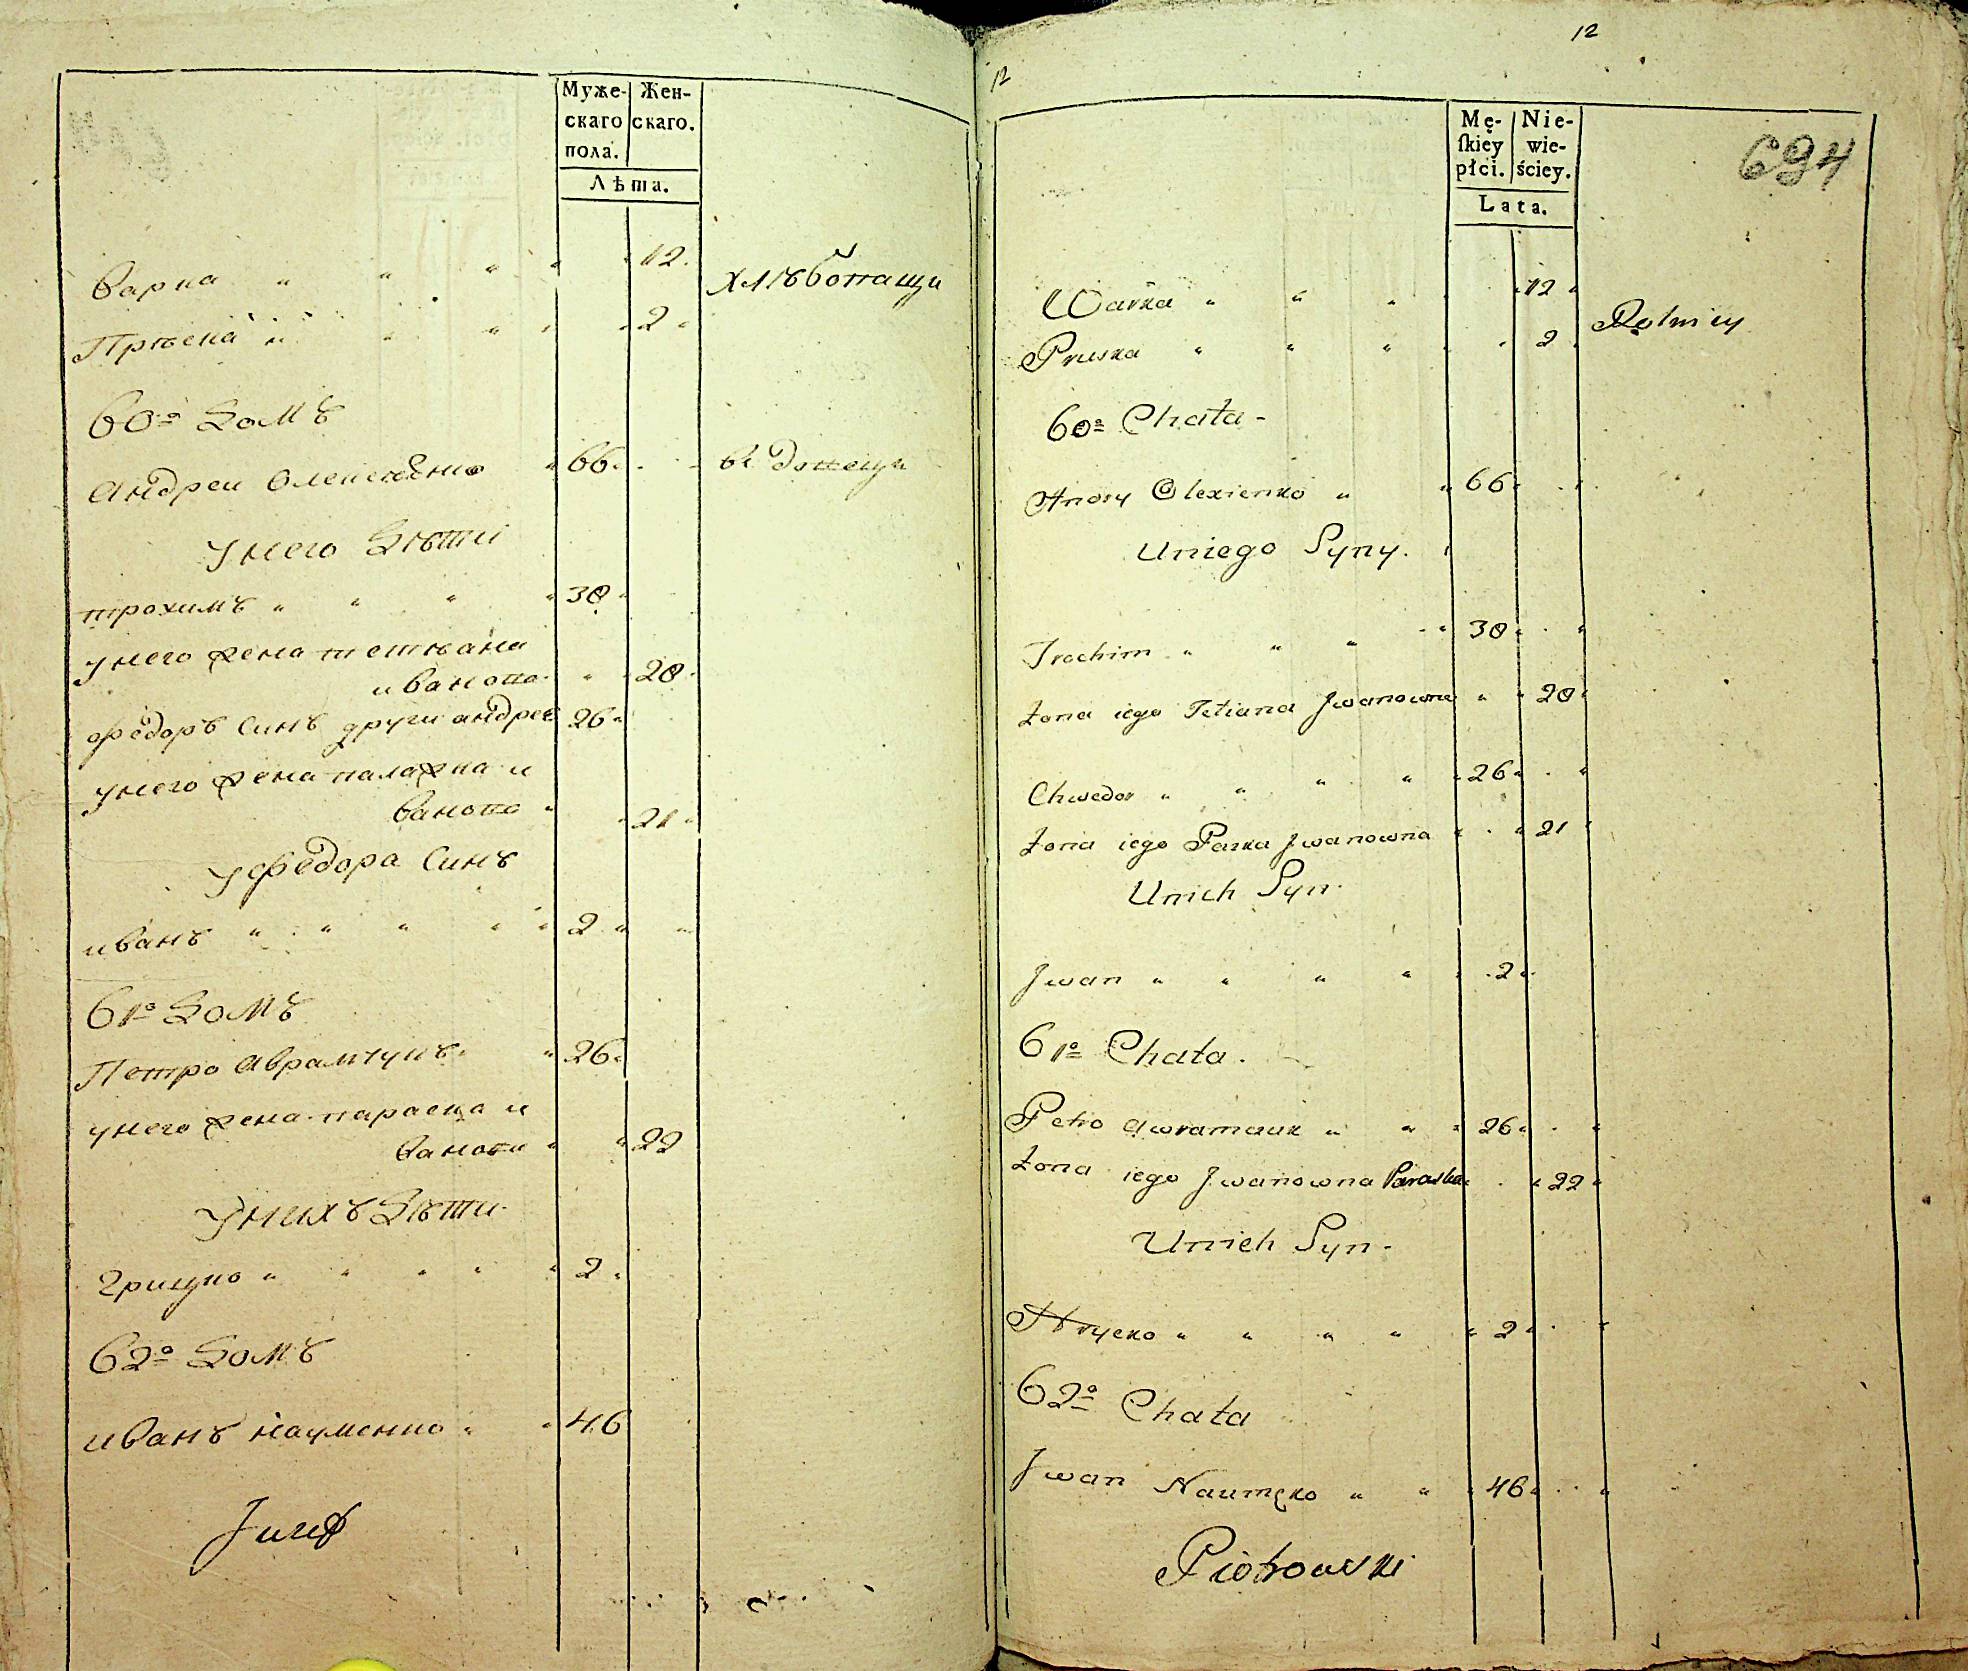 Муже-
скаго
пола.
Жен-
скаго.
Лѣта.
Варка 12
хлѣбопащи
Прѣска 2
60о домъ
андреи Олексѣенко 66
вдовецъ
у него дѣти
трохимъ 30
у него жена тетѣана
иванова 20
ѳедоръ синъ други андрее 26
у него жена палажка и
ванова 21
у ѳедора синъ
иванъ 2
61о домъ
Петро аврамчукъ 26
у него жена параска и
ванова 22
У нихъ дѣти
грицко 2
62о домъ
иванъ науменко 46
Jozef
12
12
694
Mę-
ſkiey
płci.
Nie-
wie-
ściey.
Lata.
Warka 12
Rolnicy
Pruska 2
60o Chata
Andry Olexienko 66
U niego Syny.
Trochim 30
Żona iego Tetiana Jwanowna 20
Chwedor 26
Żona iego Parka Jwanowna 21
U nich Syn
Jwan 2
61o Chata
Petro Awramczuk 26
Żona iego Jwanowna Paraska 22
U nich Syn
Hrycko 2
62o Chata
Jwan Naumęko 46
Piotrowski